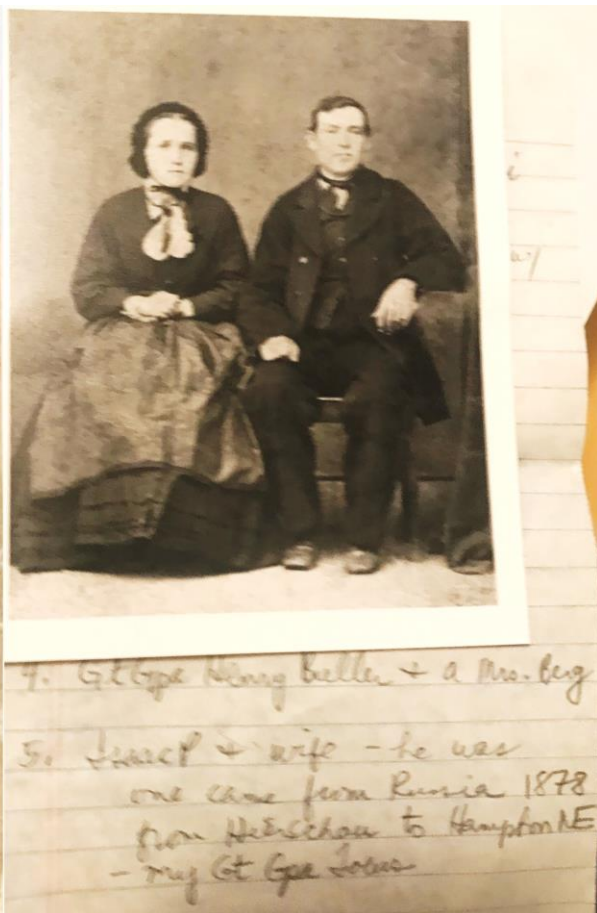 i
w/
4. Gt Gpa Henry Buller + a Mrs. Berg
5. Isaac P & wife - he was
one came from Russia 1878
from to Hampton NE
- my Gt Gpa